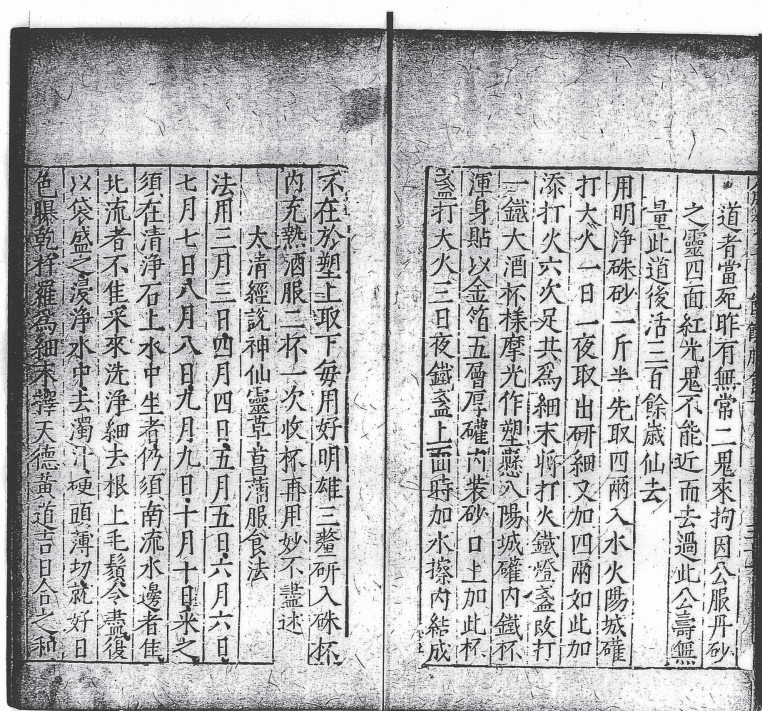 道者當死昨有無常二鬼來拘因公服丹砂
之靈四面紅光鬼不能近而去過此公壽無
量此道後活三百餘歲仙去
用明淨硃砂一斤半先取四兩入水火陽城確
打大火一日一夜取出研細又加四兩如此加
添打火六次足共為細末將打火鐵燈盞改打
一鐵大酒杯樣摩光作塑懸入陽城確內鐵杯
渾身貼以金箔五層厚確內裝砂口上加此杯
盞打大火三日夜鐵盞上面時加水擦內結成
不在於塑上取下每用好明雄三釐研入硃杯
內充熱酒服二杯一次收杯再用妙不盡述
太清經說神仙靈草菖蒲服食法
法用三月三日四月四日五月五日六月六日
七月七日八月八日九月九日十月十日采之
須在清淨石上水中生者仍須南流水邊者佳
北流者不佳采來洗淨細去根上毛鬚令盡復
以袋盛之浸淨水中去濁汁硬頭薄切就好日
色曝乾杵羅為細末擇天德黃道吉日合之和